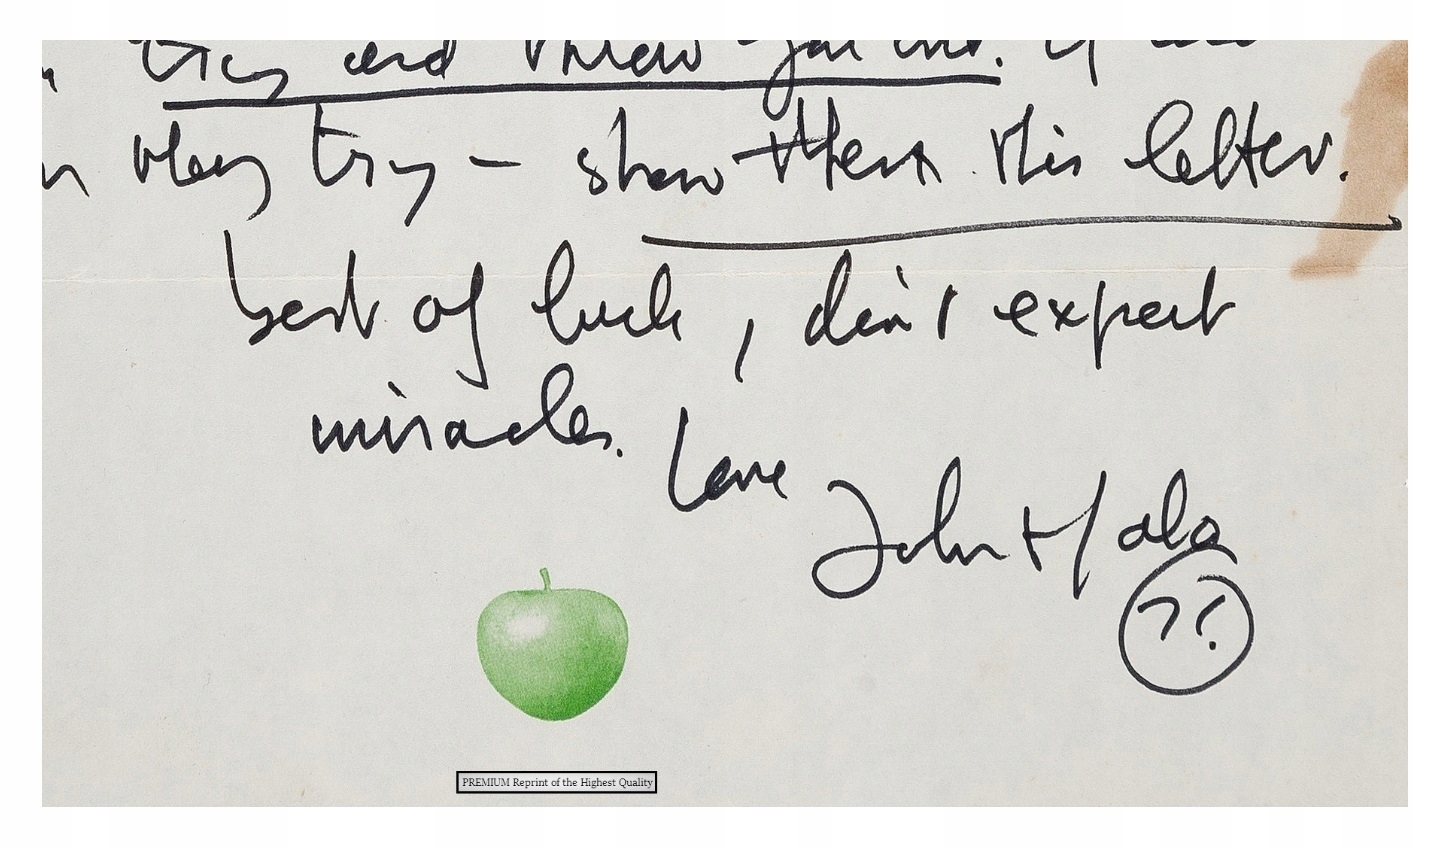 try and throw you out. If
they try – show them this letter.
best of luck, don't expect
miracles.
love
John + Yoko
??
PREMIUM Reprint of the Highest Quality